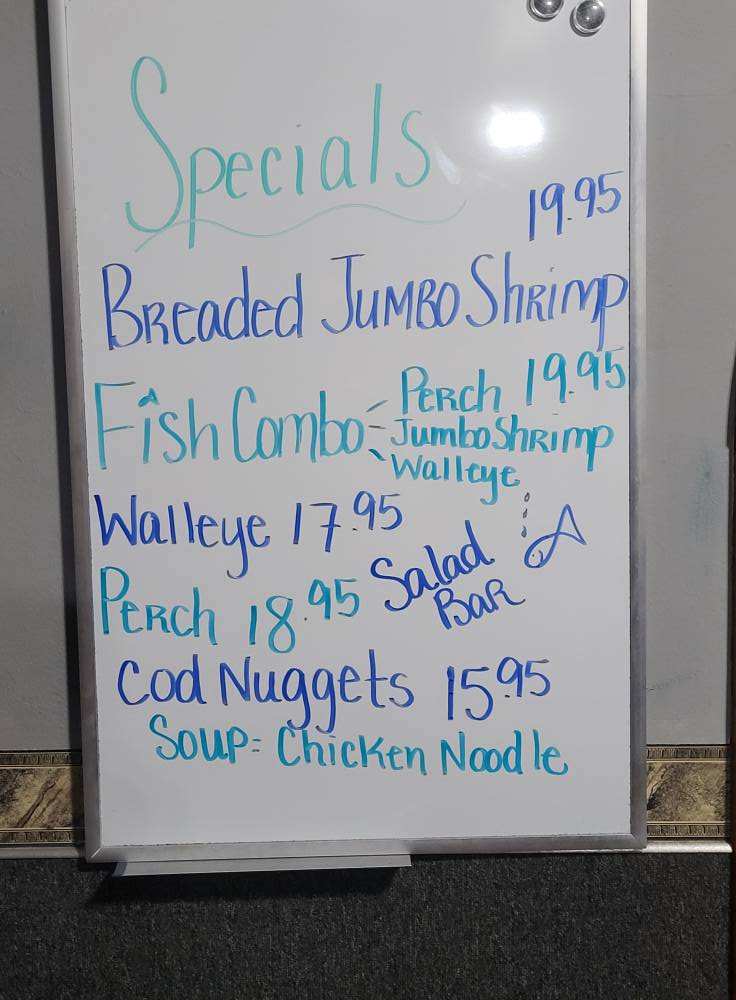 Specials
19.95
Breaded Jumbo Shrimp
Fish Combo - Perch 19.95
- Jumbo Shrimp
- Walleye
Walleye 17.95
Salad
Bar
Perch 18.95
Cod Nuggets 15.95
Soup = Chicken Noodle